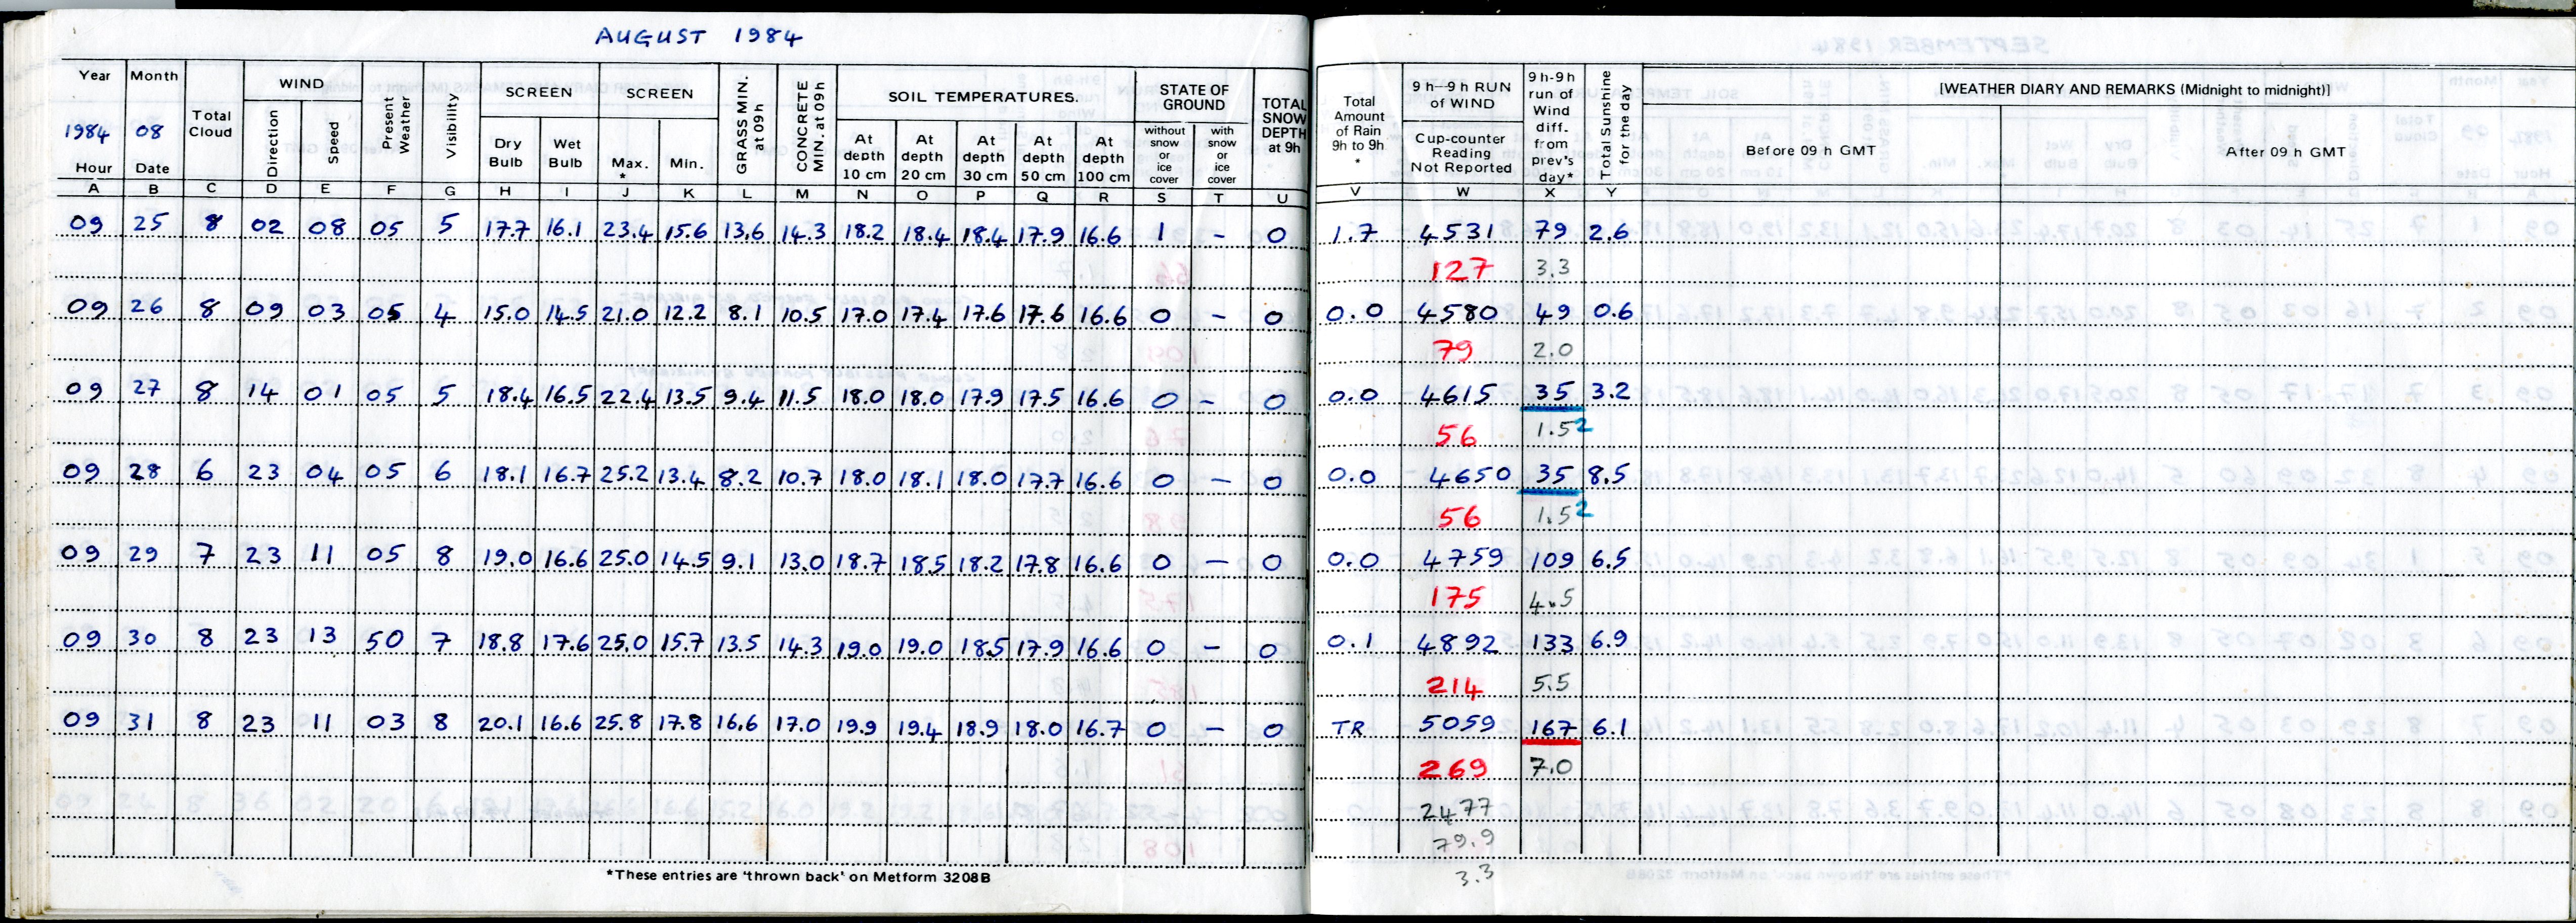 AUGUST 1984
Year Month Total Cloud WIND Present Weather Visibility SCREEN SCREEN GRASS MIN. at 09h CONCRETE MIN. at 09h SOIL TEMPERATURES. STATE OF GROUND TOTAL SNOW DEPTH at 9h Total Amount of Rain 9h to 9h * 9 h—9 h RUN of WIND 9 h-9 h run of Wind diff. from prev's day* Total Sunshine for the day [WEATHER DIARY AND REMARKS (Midnight to midnight)]
1984 08 Direction Speed Dry Bulb Wet Bulb Max. * Min. At depth 10 cm At depth 20 cm At depth 30 cm At depth 50 cm At depth 100 cm without snow or ice cover with snow or ice cover Cup-counter Reading Not Reported Before 09 h GMT After 09 h GMT
Hour Date
A B C D E F G H I J K L M N O P Q R S T U V W X Y
09 25 8 02 08 05 5 17.7 16.1 23.4 15.6 13.6 14.3 18.2 18.4 18.4 17.9 16.6 1 - 0 1.7 4531 79 2.6
127 3.3
09 26 8 09 03 05 4 15.0 14.5 21.0 12.2 8.1 10.5 17.0 17.4 17.6 17.6 16.6 0 - 0 0.0 4580 49 0.6
79 2.0
09 27 8 14 01 05 5 18.4 16.5 22.4 13.5 9.4 11.5 18.0 18.0 17.9 17.5 16.6 0 - 0 0.0 4615 35 3.2
56 1.5 2
09 28 6 23 04 05 6 18.1 16.7 25.2 13.4 8.2 10.7 18.0 18.1 18.0 17.7 16.6 0 - 0 0.0 4650 35 8.5
56 1.5 2
09 29 7 23 11 05 8 19.0 16.6 25.0 14.5 9.1 13.0 18.7 18.5 18.2 17.8 16.6 0 - 0 0.0 4759 109 6.5
175 4.5
09 30 8 23 13 50 7 18.8 17.6 25.0 15.7 13.5 14.3 19.0 19.0 18.5 17.9 16.6 0 - 0 0.1 4892 133 6.9
214 5.5
09 31 8 23 11 03 8 20.1 16.6 25.8 17.8 16.6 17.0 19.9 19.4 18.9 18.0 16.7 0 - 0 TR 5059 167 6.1
269 7.0
2477
79.9
3.3
*These entries are 'thrown back' on Metform 3208B